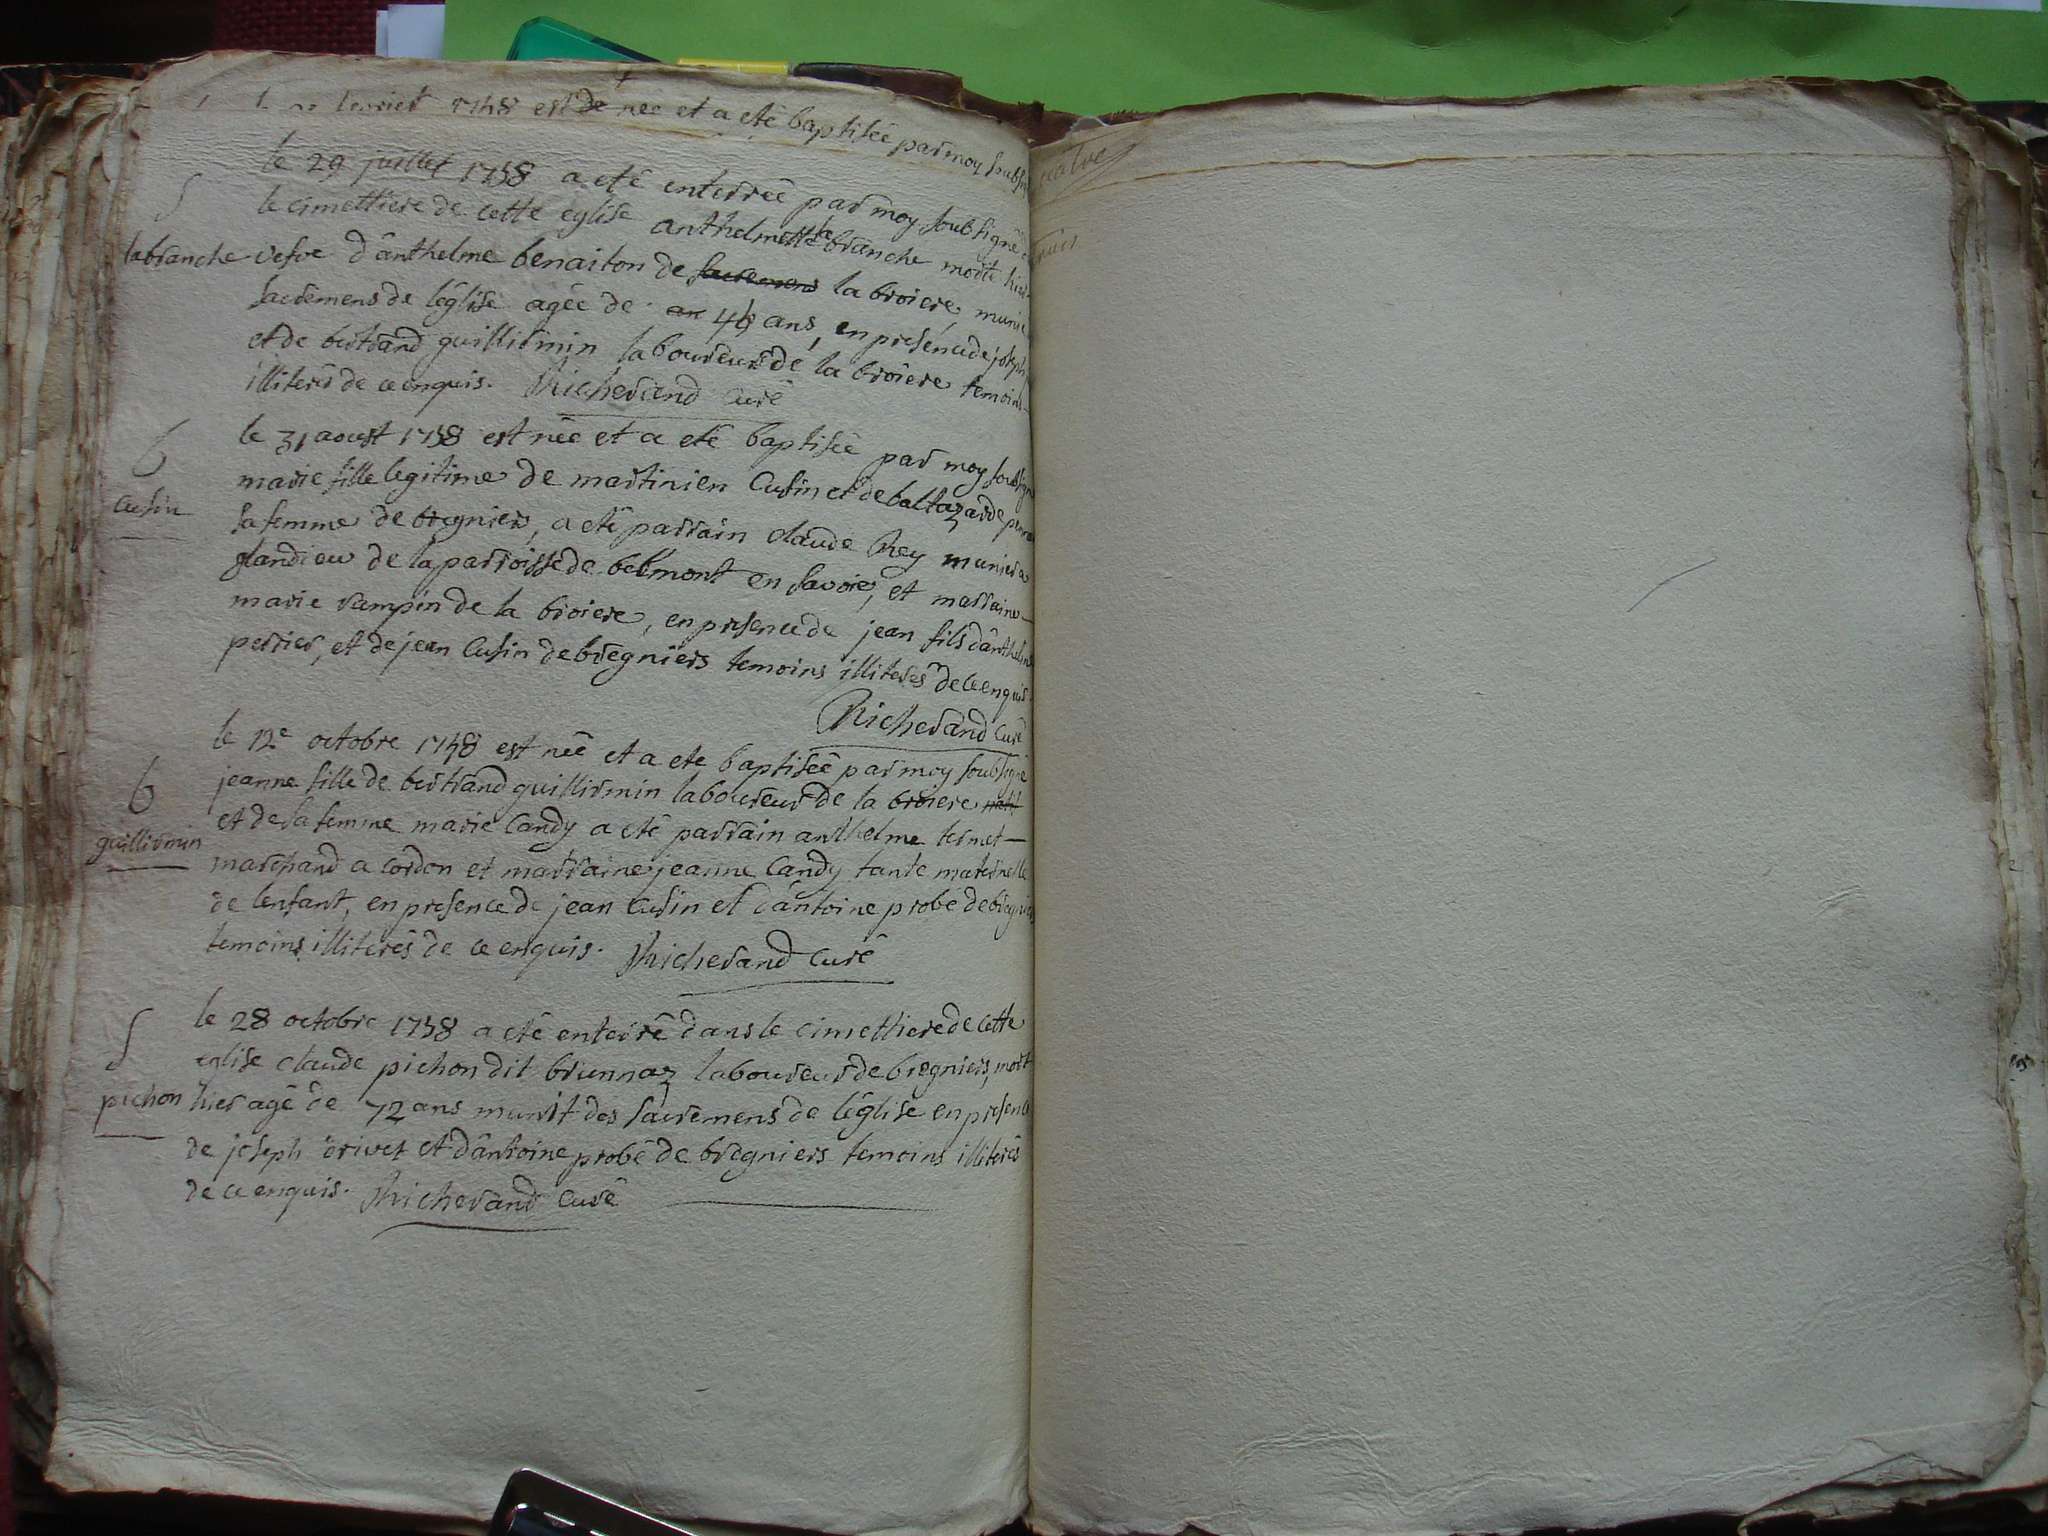 fevrier 1748 est née et a eté baptisée par moy soubs
le 29 juillet 1758 a eté enterrée par moy soubsigné
S
le cimettiere de cette eglise anthelmette la branche morte hier
labranche
vefve d'anthelme benaiton de sacremens la broiere, munie
sacremens de l'église agée de 46 ans, en présence de joseph
et de bertrand guillirmin laboureur de la broiere temoins
illiterés de ce enquis. Richerand Curé
b
le 31 aoust 1758 est née et a eté baptisée par moy soubsigné
cusin
marie fille legitime de martinien Cusin et de baltazarde
sa femme de bregniers, a eté parrain claude Rey munier a
glandieu de la parroisse de belmont en Savoie, et marraine
marie rampin de la broiere, en presence de jean fils d'anthelme
perrier, et de jean Cusin de brégniers temoins illiterés de ce enquis
Richerand Curé
b
le 12e octobre 1758 est née et a ete baptisée par moy soubsigné
guillirmin
jeanne fille de bertrand guillirmin laboureur de la broiere
et de sa femme marie Candy a eté parrain anthelme ternet
marchand a cordon et marraine jeanne Candy tante maternelle
de l'enfant, en presence de jean Cusin et d'antoine probé de bregniers
temoins illiterés de ce enquis. Richerand Curé
S
le 28 octobre 1758 a eté enterré dans le cimettiere de cette
pichon
eglise claude pichon dit brunnaz laboureur de bregniers, mort
hier agé de 72 ans munit des sacremens de l'église en presence
de joseph orivet et d'antoine probé de brégniers temoins illiterés
de ce enquis. Richerand Curé